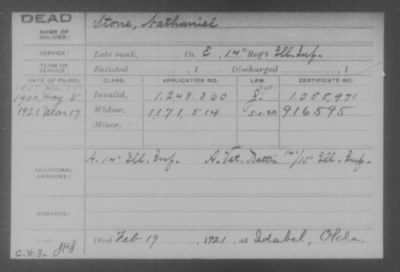 DEAD
NAME OF SOLDIER: Stone, Nathaniel
SERVICE: Late rank, Co. E, 14" Reg't Ill. Inf.
TERM OF SERVICE: Enlisted , 1 Discharged , 1
DATE OF FILING. CLASS. APPLICATION NO. LAW. CERTIFICATE NO.
1900 May 5 Invalid, 1,249,360 1,055,971
1921 Mar 17 Widow, 1,171,514 916595
Minor,
ADDITIONAL SERVICES: A. 14" Ill. Inf. A. Vet. Batt'n 14"/15" Ill. Inf.
REMARKS:
Died Feb 19, 1921, at Idabel, Okla.